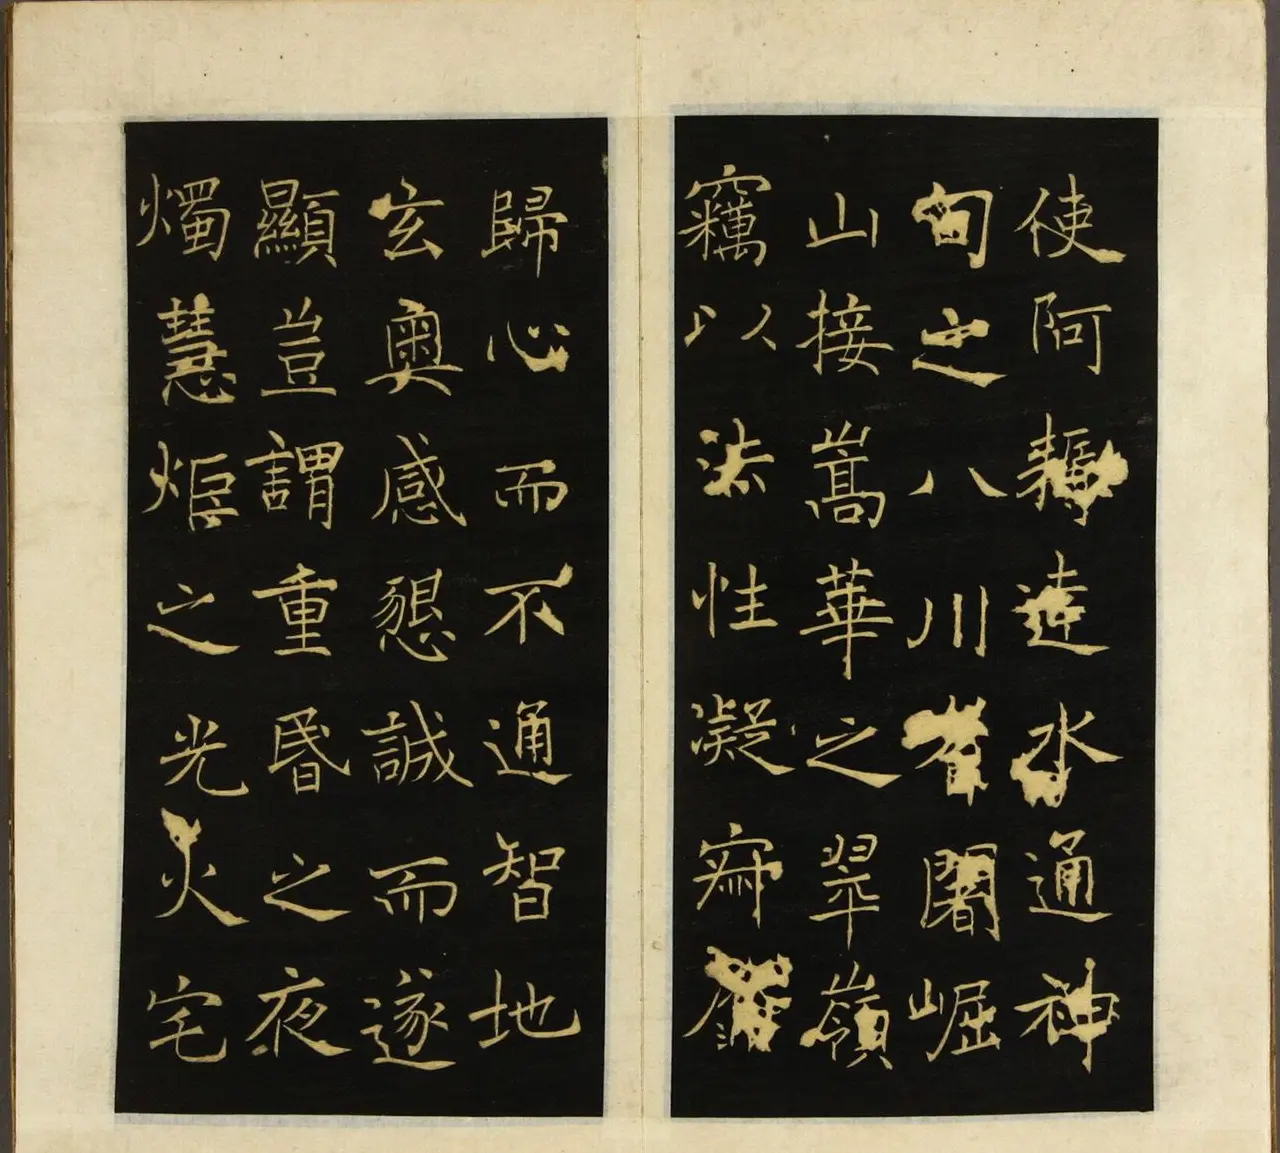 使阿耨達水通神
甸之八川耆闍崛
山接嵩華之翠嶺
竊以法性凝寂靡
歸心而不通智地
玄奧感懇誠而遂
顯豈謂重昬之夜
燭慧炬之光火宅